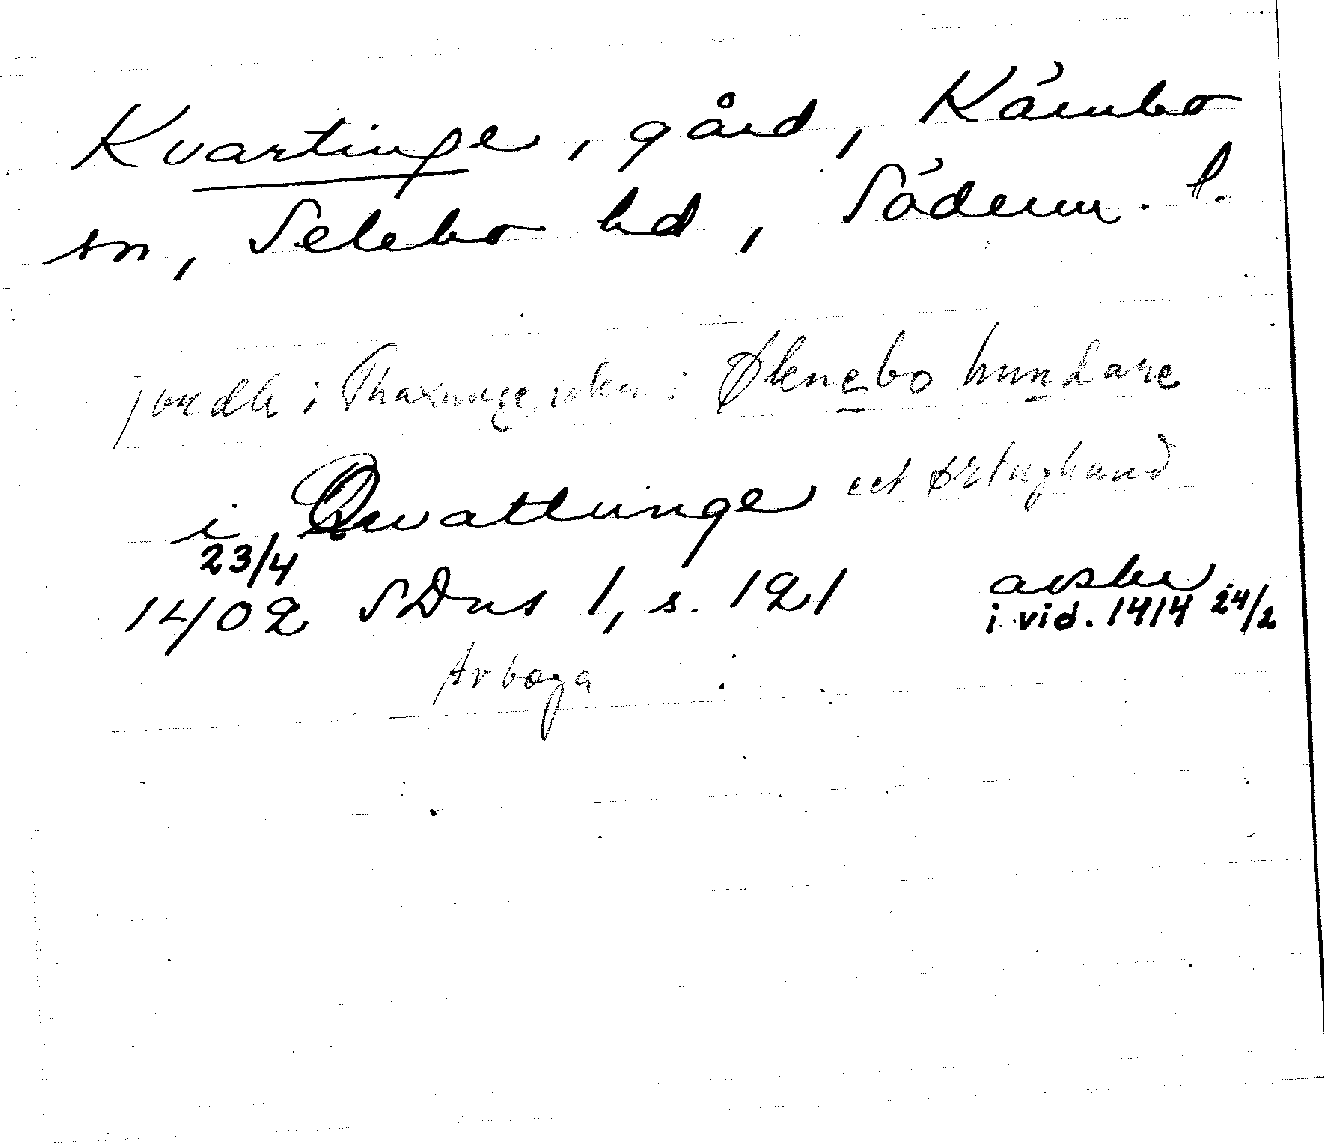 Kvartinge, gård, Kärnbo
sn, Selebo hd, Söderm. l.
jordh i Thaxunge sokn i Øknebo hundare
i Qwattunge eet ørtughland
23/4
1402 SDns 1, s. 121 avskr
i vid. 1414 24/2
Arboga